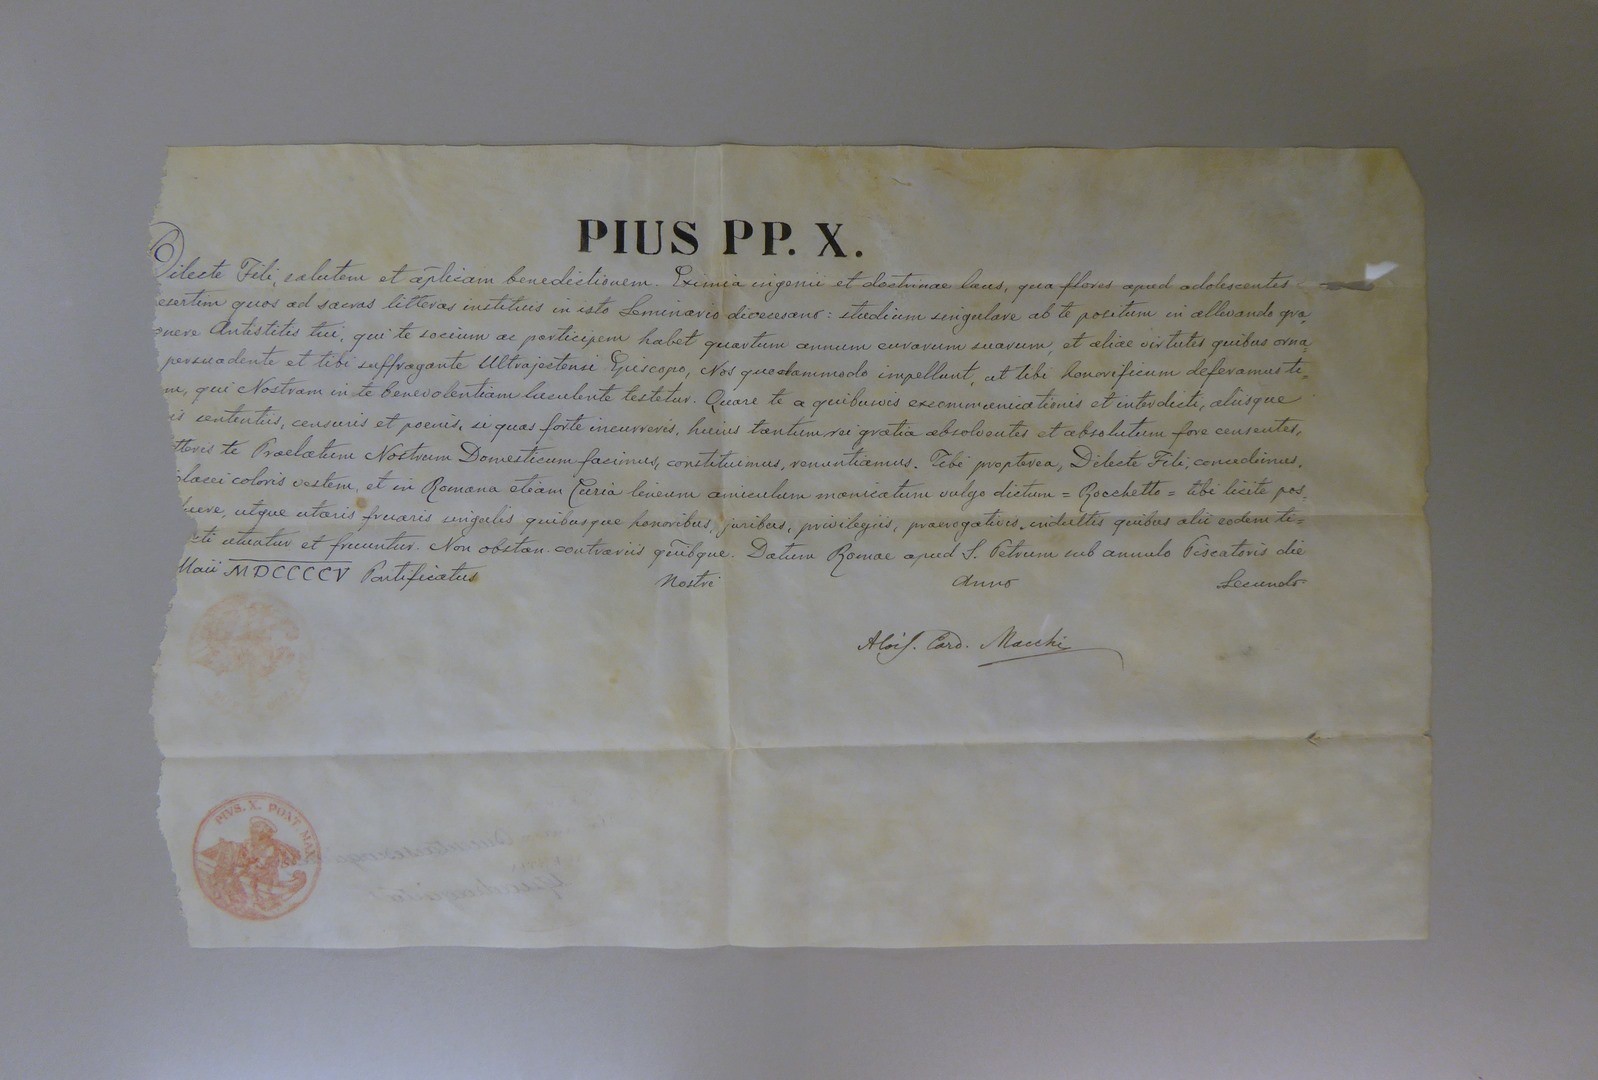 PIUS PP. X.
Dilecte Fili, salutem et aplicam benedictionem. Eximia ingenii et doctrinae laus, qua flores apud adolescentes
esertim quos ad sacras litteras instituis in isto Seminario dioecesano: studium singulare ab te positum in allevando gra=
onere Antistitis tui, qui te socium ac participem habet quartum annum curarum suarum, et aliae virtutes quibus orna=
persuadente et tibi suffragante Ultrajectensi Episcopo, Nos quodammodo impellunt, ut tibi honorificum deferamus ti=
m, qui Nostram in te benevolentiam luculente testetur. Quare te a quibusvis excommunicationis et interdicti, aliisque
is sententiis, censuris et poenis, si quas forte incurreris, huius tantum rei gratia absolventes et absolutum fore censentes,
tteris te Praelatum Nostrum Domesticum facimus, constituimus, renuntiamus. Tibi propterea, Dilecte Fili, concedimus,
olacei coloris vestem, et in Romana etiam Curia lineum amiculum manicatum vulgo dictum = Rocchetto = tibi licite pos=
duere, utque utaris fruaris singulis quibusque honoribus, juribus, privilegiis, praerogativis, indultis quibus alii eodem ti=
cti utuntur et fruuntur. Non obstan. contrariis quibqque. Datum Romae apud S. Petrum sub annulo Piscatoris die
Maii MDCCCCV Pontificatus Nostri Anno Secundo
Alois. Card. Macchi
PIVS. X. PONT MAX.